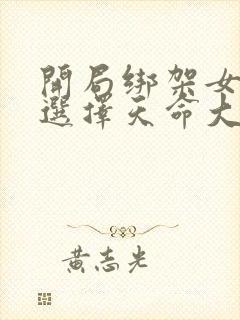 開局綁架女
選擇天命大
黃志光